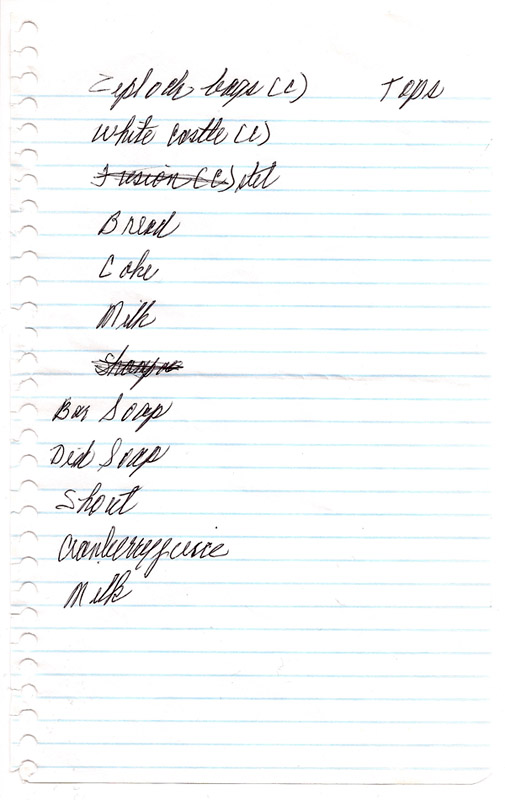 Ziplock bags (c) Tops
White Castle (c)
Fusion (c)
Bread
Coke
Milk
Bar Soap
Dial Soap
Shout
Cranberry juice
Milk